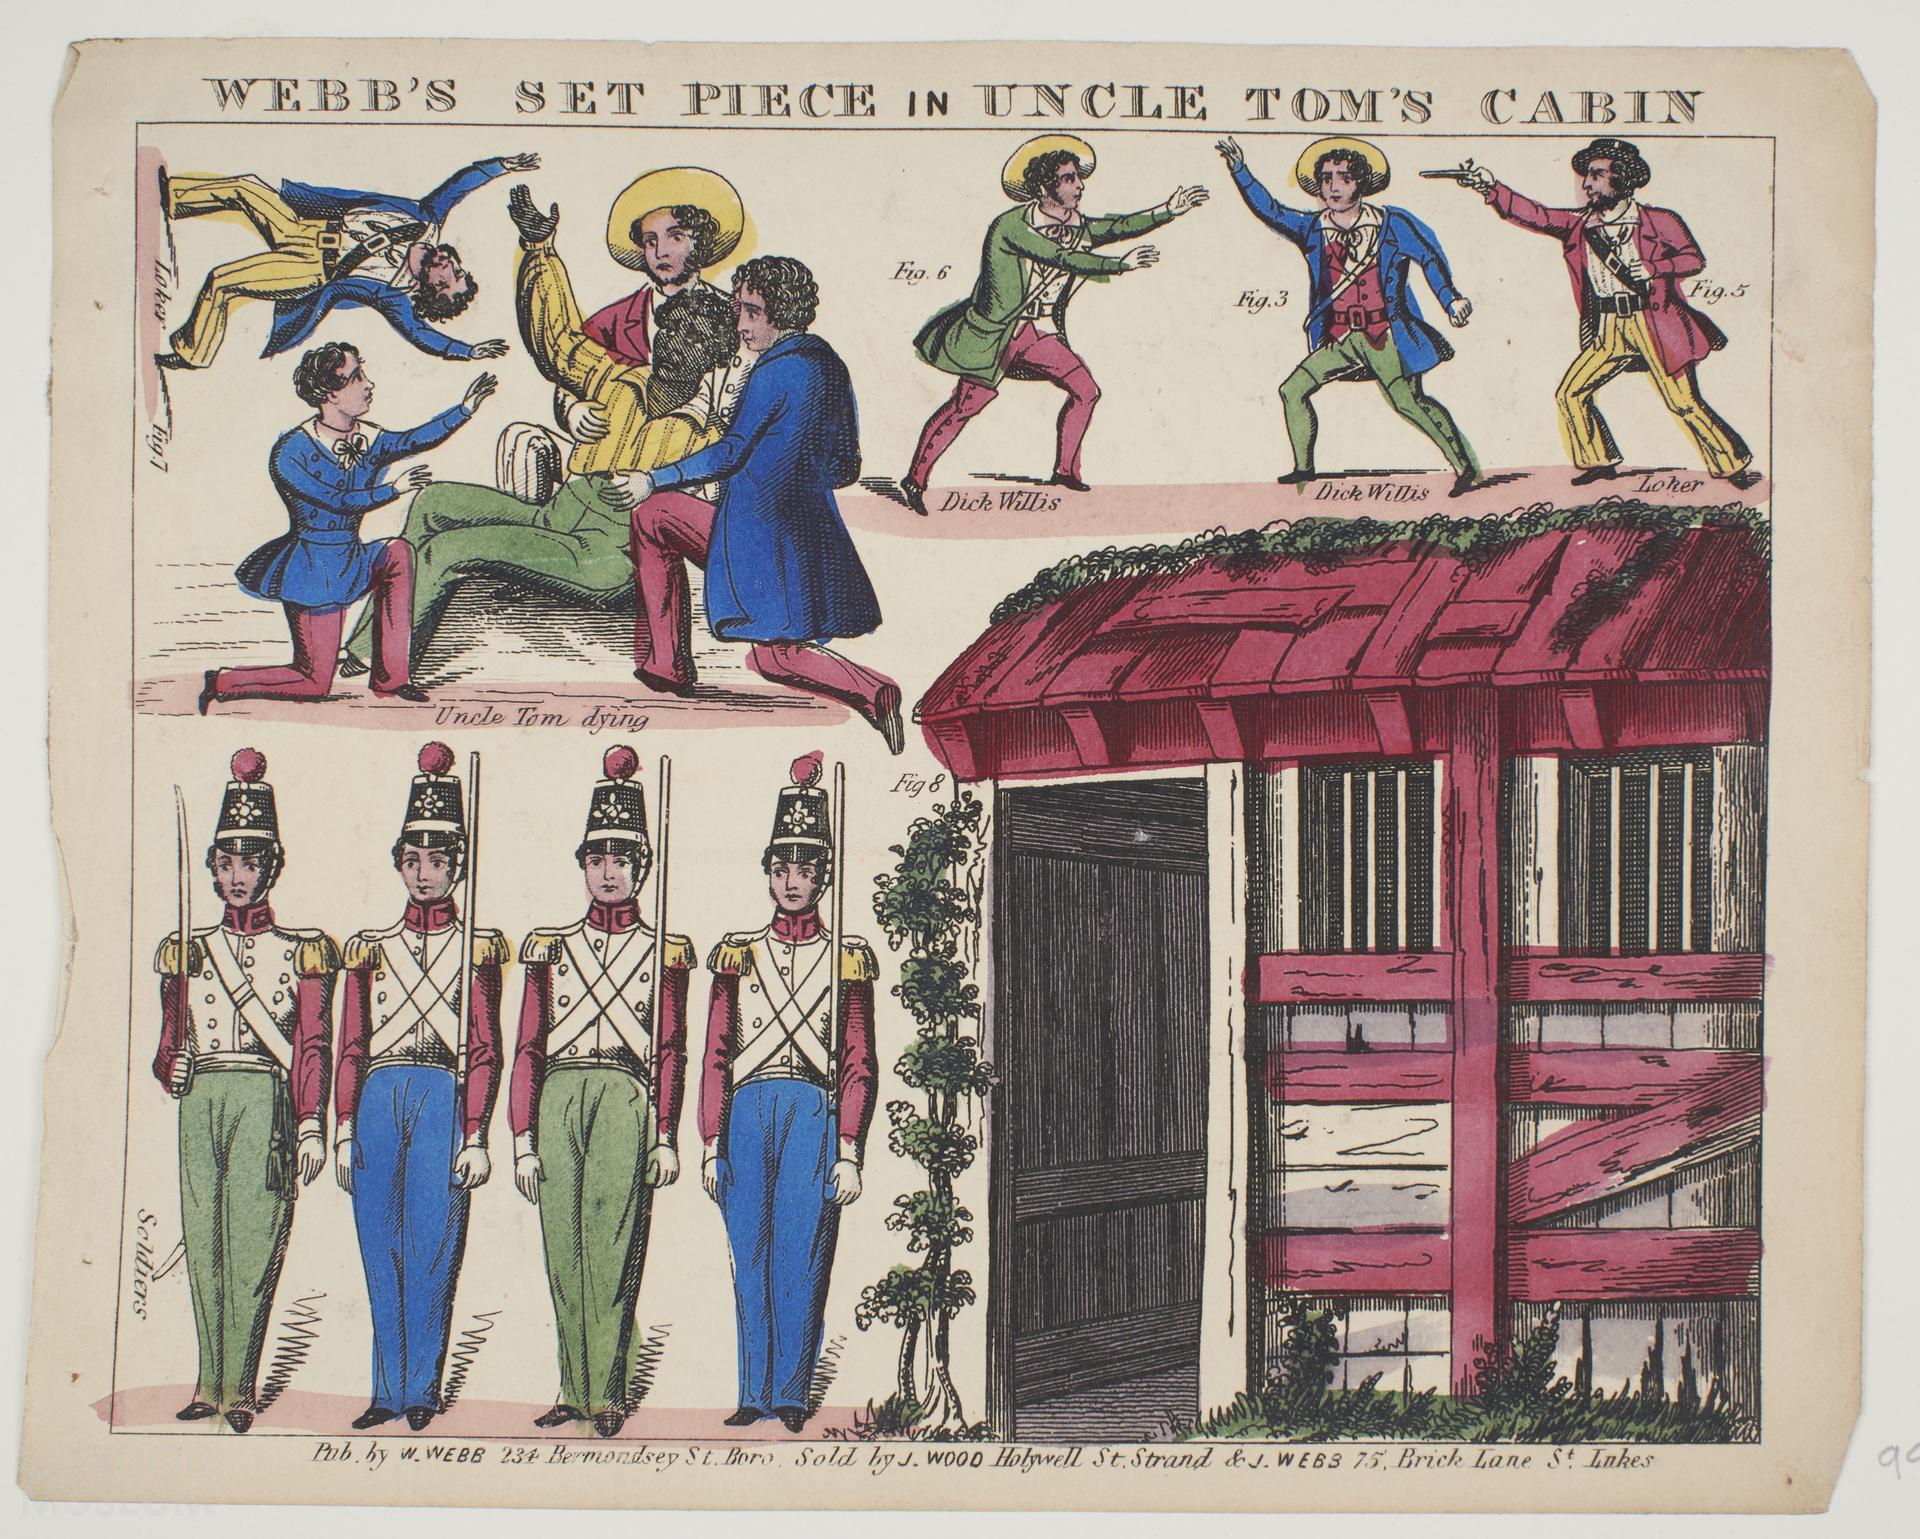 WEBB'S SET PIECE IN UNCLE TOM'S CABIN
Loker
Fig. 7
Uncle Tom dying
Fig. 6
Dick Willis
Fig. 3
Dick Willis
Fig. 5
Loker
Fig 8
Soldiers
Pub. by W. WEBB 234 Bermondsey St. Boro. Sold by J. WOOD Holywell St. Strand & J. WEBB 75, Brick Lane St. Lukes